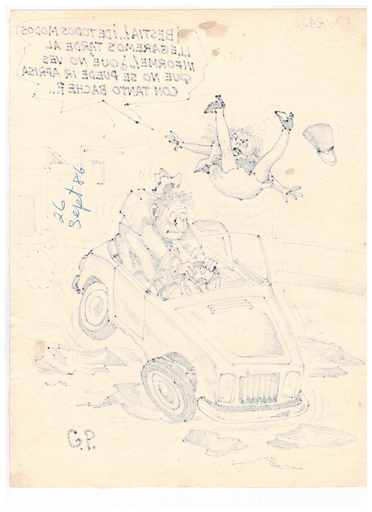 ¡BESTIA!..¡DE TODOS MODOS
LLEGAREMOS TARDE AL
INFORME!..¿QUE NO VES
QUE NO SE PUEDE IR APRISA
CON TANTO BACHE?..
26
Sept 86
G.P.